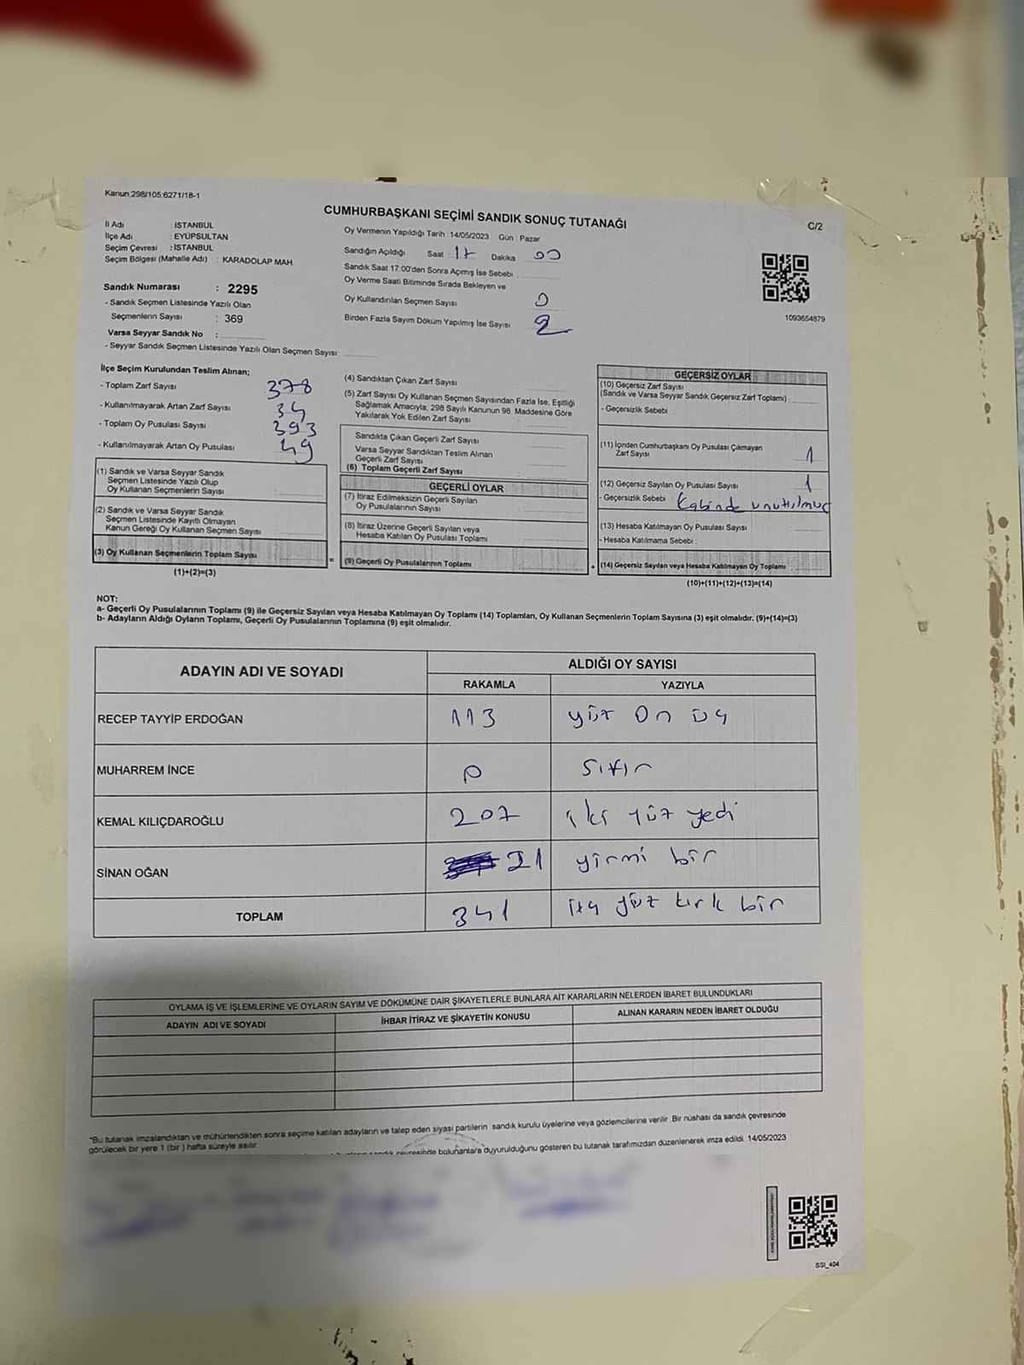 Kanun:298/105:6271/18-1
CUMHURBAŞKANI SEÇİMİ SANDIK SONUÇ TUTANAĞI
C/2
İl Adı : İSTANBUL
İlçe Adı : EYÜPSULTAN
Seçim Çevresi : İSTANBUL
Seçim Bölgesi (Mahalle Adı) : KARADOLAP MAH.
Sandık Numarası : 2295
- Sandık Seçmen Listesinde Yazılı Olan
Seçmenlerin Sayısı : 369
Varsa Seyyar Sandık No :
- Seyyar Sandık Seçmen Listesinde Yazılı Olan Seçmen Sayısı
Oy Vermenin Yapıldığı Tarih : 14/05/2023 Gün : Pazar
Sandığın Açıldığı Saat 17 Dakika 00
Sandık Saat 17.00'den Sonra Açımış İse Sebebi
Oy Verme Saati Bitiminde Sırada Bekleyen ve
Oy Kullandırılan Seçmen Sayısı 0
Birden Fazla Sayım Döküm Yapılmış İse Sayısı 2
1093654879
İlçe Seçim Kurulundan Teslim Alınan;
- Toplam Zarf Sayısı 378
- Kullanılmayarak Artan Zarf Sayısı 34
- Toplam Oy Pusulası Sayısı 393
- Kullanılmayarak Artan Oy Pusulası 49
(1) Sandık ve Varsa Seyyar Sandık
Seçmen Listesinde Yazılı Olup
Oy Kullanan Seçmenlerin Sayısı
(2) Sandık ve Varsa Seyyar Sandık
Seçmen Listesinde Kayıtlı Olmayan
Kanun Gereği Oy Kullanan Seçmen Sayısı
(3) Oy Kullanan Seçmenlerin Toplam Sayısı
(1)+(2)=(3)
(4) Sandıktan Çıkan Zarf Sayısı
(5) Zarf Sayısı Oy Kullanan Seçmen Sayısından Fazla İse, Eşitliği
Sağlamak Amacıyla, 298 Sayılı Kanunun 98. Maddesine Göre
Yakılarak Yok Edilen Zarf Sayısı
Sandıkta Çıkan Geçerli Zarf Sayısı
Varsa Seyyar Sandıktan Teslim Alınan
Geçerli Zarf Sayısı
(6) Toplam Geçerli Zarf Sayısı
GEÇERLİ OYLAR
(7) İtiraz Edilmeksizin Geçerli Sayılan
Oy Pusulalarının Sayısı
(8) İtiraz Üzerine Geçerli Sayılan veya
Hesaba Katılan Oy Pusulası Toplamı
(9) Geçerli Oy Pusulalarının Toplamı
GEÇERSİZ OYLAR
(10) Geçersiz Zarf Sayısı
(Sandık ve Varsa Seyyar Sandık Geçersiz Zarf Toplamı)
- Geçersizlik Sebebi
(11) İçinden Cumhurbaşkanı Oy Pusulası Çıkmayan
Zarf Sayısı 1
(12) Geçersiz Sayılan Oy Pusulası Sayısı 1
- Geçersizlik Sebebi Kabinde unutulmuş
(13) Hesaba Katılmayan Oy Pusulası Sayısı
- Hesaba Katılmama Sebebi :
(14) Geçersiz Sayılan veya Hesaba Katılmayan Oy Toplamı
(10)+(11)+(12)+(13)=(14)
NOT:
a- Geçerli Oy Pusulalarının Toplamı (9) ile Geçersiz Sayılan veya Hesaba Katılmayan Oy Toplamı (14) Toplamları, Oy Kullanan Seçmenlerin Toplam Sayısına (3) eşit olmalıdır. (9)+(14)=(3)
b- Adayların Aldığı Oyların Toplamı, Geçerli Oy Pusulalarının Toplamına (9) eşit olmalıdır.
ADAYIN ADI VE SOYADI
ALDIĞI OY SAYISI
RAKAMLA YAZIYLA
RECEP TAYYİP ERDOĞAN 113 yüz on üç
MUHARREM İNCE 0 sıfır
KEMAL KILIÇDAROĞLU 207 iki yüz yedi
SİNAN OĞAN 21 yirmi bir
TOPLAM 341 üç yüz kırk bir
OYLAMA İŞ VE İŞLEMLERİNE VE OYLARIN SAYIM VE DÖKÜMÜNE DAİR ŞİKAYETLERLE BUNLARA AİT KARARLARIN NELERDEN İBARET BULUNDUKLARI
ADAYIN ADI VE SOYADI İHBAR İTİRAZ VE ŞİKAYETİN KONUSU ALINAN KARARIN NEDEN İBARET OLDUĞU
"Bu tutanak imzalandıktan ve mühürlendikten sonra seçime katılan adayların ve talep eden siyasi partilerin sandık kurulu üyelerine veya gözlemcilerine verilir. Bir nüshası da sandık çevresinde
görülecek bir yere 1 (bir) hafta süreyle asılır.
sandık çevresinde bulunanlara duyurulduğunu gösteren bu tutanak tarafımızdan düzenlenerek imza edildi. 14/05/2023
SSI_404